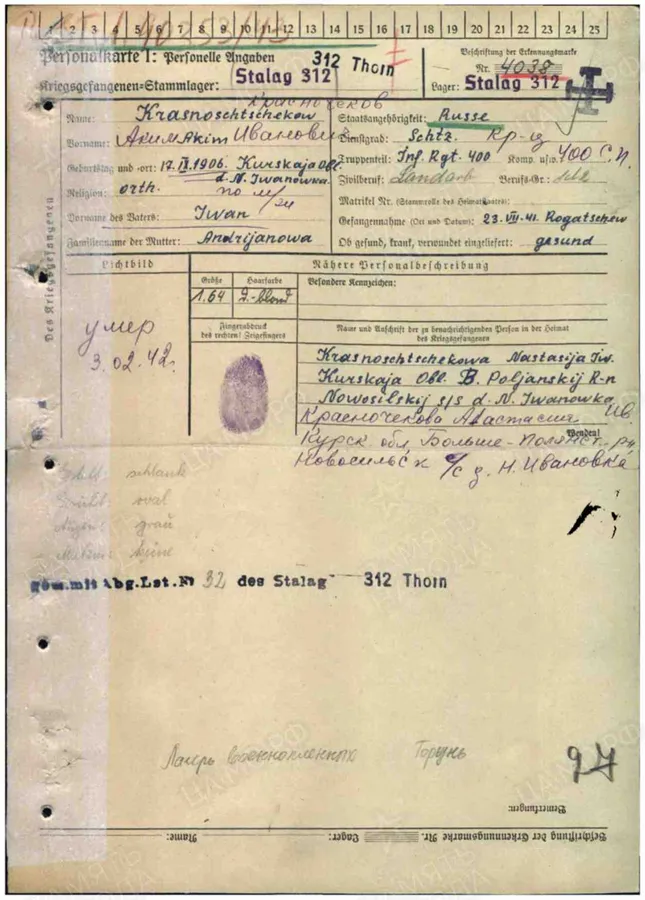 1 2 3 4 5 6 7 8 9 10 11 12 13 14 15 16 17 18 19 20 21 22 23 24 25
Personalkarte I: Personelle Angaben
312 Thorn
Kriegsgefangenen=Stammlager: Stalag 312
Beschriftung der Erkennungsmarke
Nr. 4038
Lager: Stalag 312
Des Kriegsgefangenen
Красночеков
Name: Krasnoschtschekow
Vorname: Аким Akim Иванович
Geburtstag und =ort: 17. 1906. Kurskaja Obl.
d. N. Iwanowka.
Religion: orth.
Vorname des Vaters: Iwan
Familienname der Mutter: Andrijanowa
Staatsangehörigkeit: Russe
Dienstgrad: Schtz. кр-ец
Truppenteil: Inf. Rgt. 400 Komp. usw. 400 с.п.
Zivilberuf: Landarb Berufs=Gr.:
Matrikel Nr. (Stammrolle des Heimatstaates):
Gefangennahme (Ort und Datum): 23. VII. 41. Rogatschew
Ob gesund, krank, verwundet eingeliefert: gesund
Lichtbild
Nähere Personalbeschreibung
Größe Haarfarbe
1.64 d.-blond
Besondere Kennzeichen:
умер
3.02.42.
Fingerabdruck
des rechten! Zeigefingers
Name und Anschrift der zu benachrichtigenden Person in der Heimat
des Kriegsgefangenen
Krasnoschtschekowa Nastasija Iw.
Kurskaja Obl. B. Poljanskij R-n
Nowosilskij s/s d. N. Iwanowka
Красночекова Ив.
Wenden!
Курск обл Больше-Полянск. рн
Новосильск с/с д. Н. Ивановка
schlank
oval
grau
keine
gem.mit Abg.Lst.Nr 32 des Stalag 312 Thorn
Лагерь военнопленных Торунь
97
Bemerkungen:
Beschriftung der Erkennungsmarke Nr. Lager: Name: